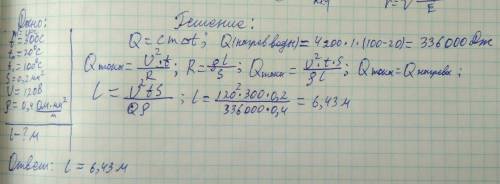 Дано:
Решение:
t=300с
t₁=20°С
t₂=100°С
S=0,2мм²
U=120В
ρ=0,4 Ом·мм²/м
l-? м
Q=cm△t; Q(нагрев воды)=4200·1·(100-20)=336000Дж
Qтока=U²·t/R; R=ρl/S; Qтока=U²·t·S/ρl; Qтока=Qнагрева;
l=U²tS/Qρ; l=120²·300·0,2/336000·0,4=6,43м
Ответ: l=6,43м